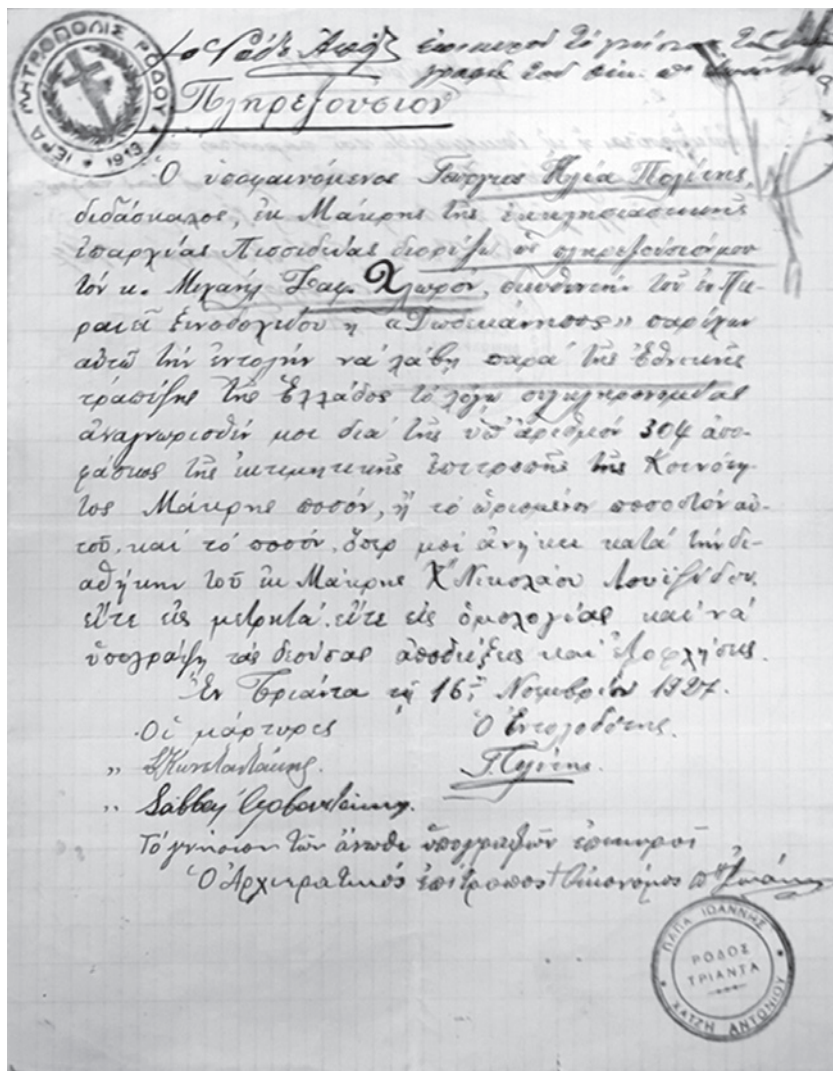 ΙΕΡΑ ΜΗΤΡΟΠΟΛΙΣ ΡΟΔΟΥ 1913
ἐπικυροῖ τὸ γνήσιον τῆς
γραφῆς τοῦ οἰκ.
Πληρεξούσιον
Ὁ ὑποφαινόμενος Γεώργιος Ἠλία Πολίτης,
διδάσκαλος, ἐκ Μάκρης τῆς ἐκκλησιαστικῆς
ἐπαρχίας Πισσιδείας διορίζω ὡς πληρεξούσιόν μου
τόν κ. Μιχαήλ Σαφ. Χλωρόν, διευθυντήν τοῦ ἐν Πει-
ραιεῖ ξενοδοχείου ἡ «Δωδεκάνησος» παρέχων
αὐτῷ τήν ἐντολήν νά λάβῃ παρά τῆς Ἐθνικῆς
τραπέζης τῆς Ἑλλάδος τό λόγῳ κληρονομίας
ἀναγνωρισθέν μοι διά τῆς ὑπ' ἀριθμόν 304 ἀπο-
φάσεως τῆς ἐκτιμητικῆς ἐπιτροπῆς τῆς Κοινότη-
τος Μάκρης ποσόν, ἤ τό ὡρισμένον ποσοστόν αὐ-
τοῦ, καί τό ποσόν, ὅπερ μοί ἀνήκει κατά τήν δι-
αθήκην τοῦ ἐκ Μάκρης Χ" Νικολάου Λουϊζίδου,
εἴτε εἰς μετρητά, εἴτε εἰς ὁμολογίας καί νά
ὑπογράψῃ τάς δεούσας ἀποδείξεις καί ἐξοφλήσεις.
Ἐν Τριάντα τῇ 16ῃ Νοεμβρίου 1927.
Οἱ μάρτυρες Ὁ Ἐντολοδότης.
" Γ. Πολίτης.
"
Τό γνήσιον τῶν ἄνωθι ὑπογραφῶν ἐπικυροῖ
Ὁ Ἀρχιερατικός ἐπίτροπος † Οἰκονόμος
ΠΑΠΑ ΙΩΑΝΝΗΣ
ΡΟΔΟΣ
ΤΡΙΑΝΤΑ
ΧΑΤΖΗ ΑΝΤΩΝΙΟΥ